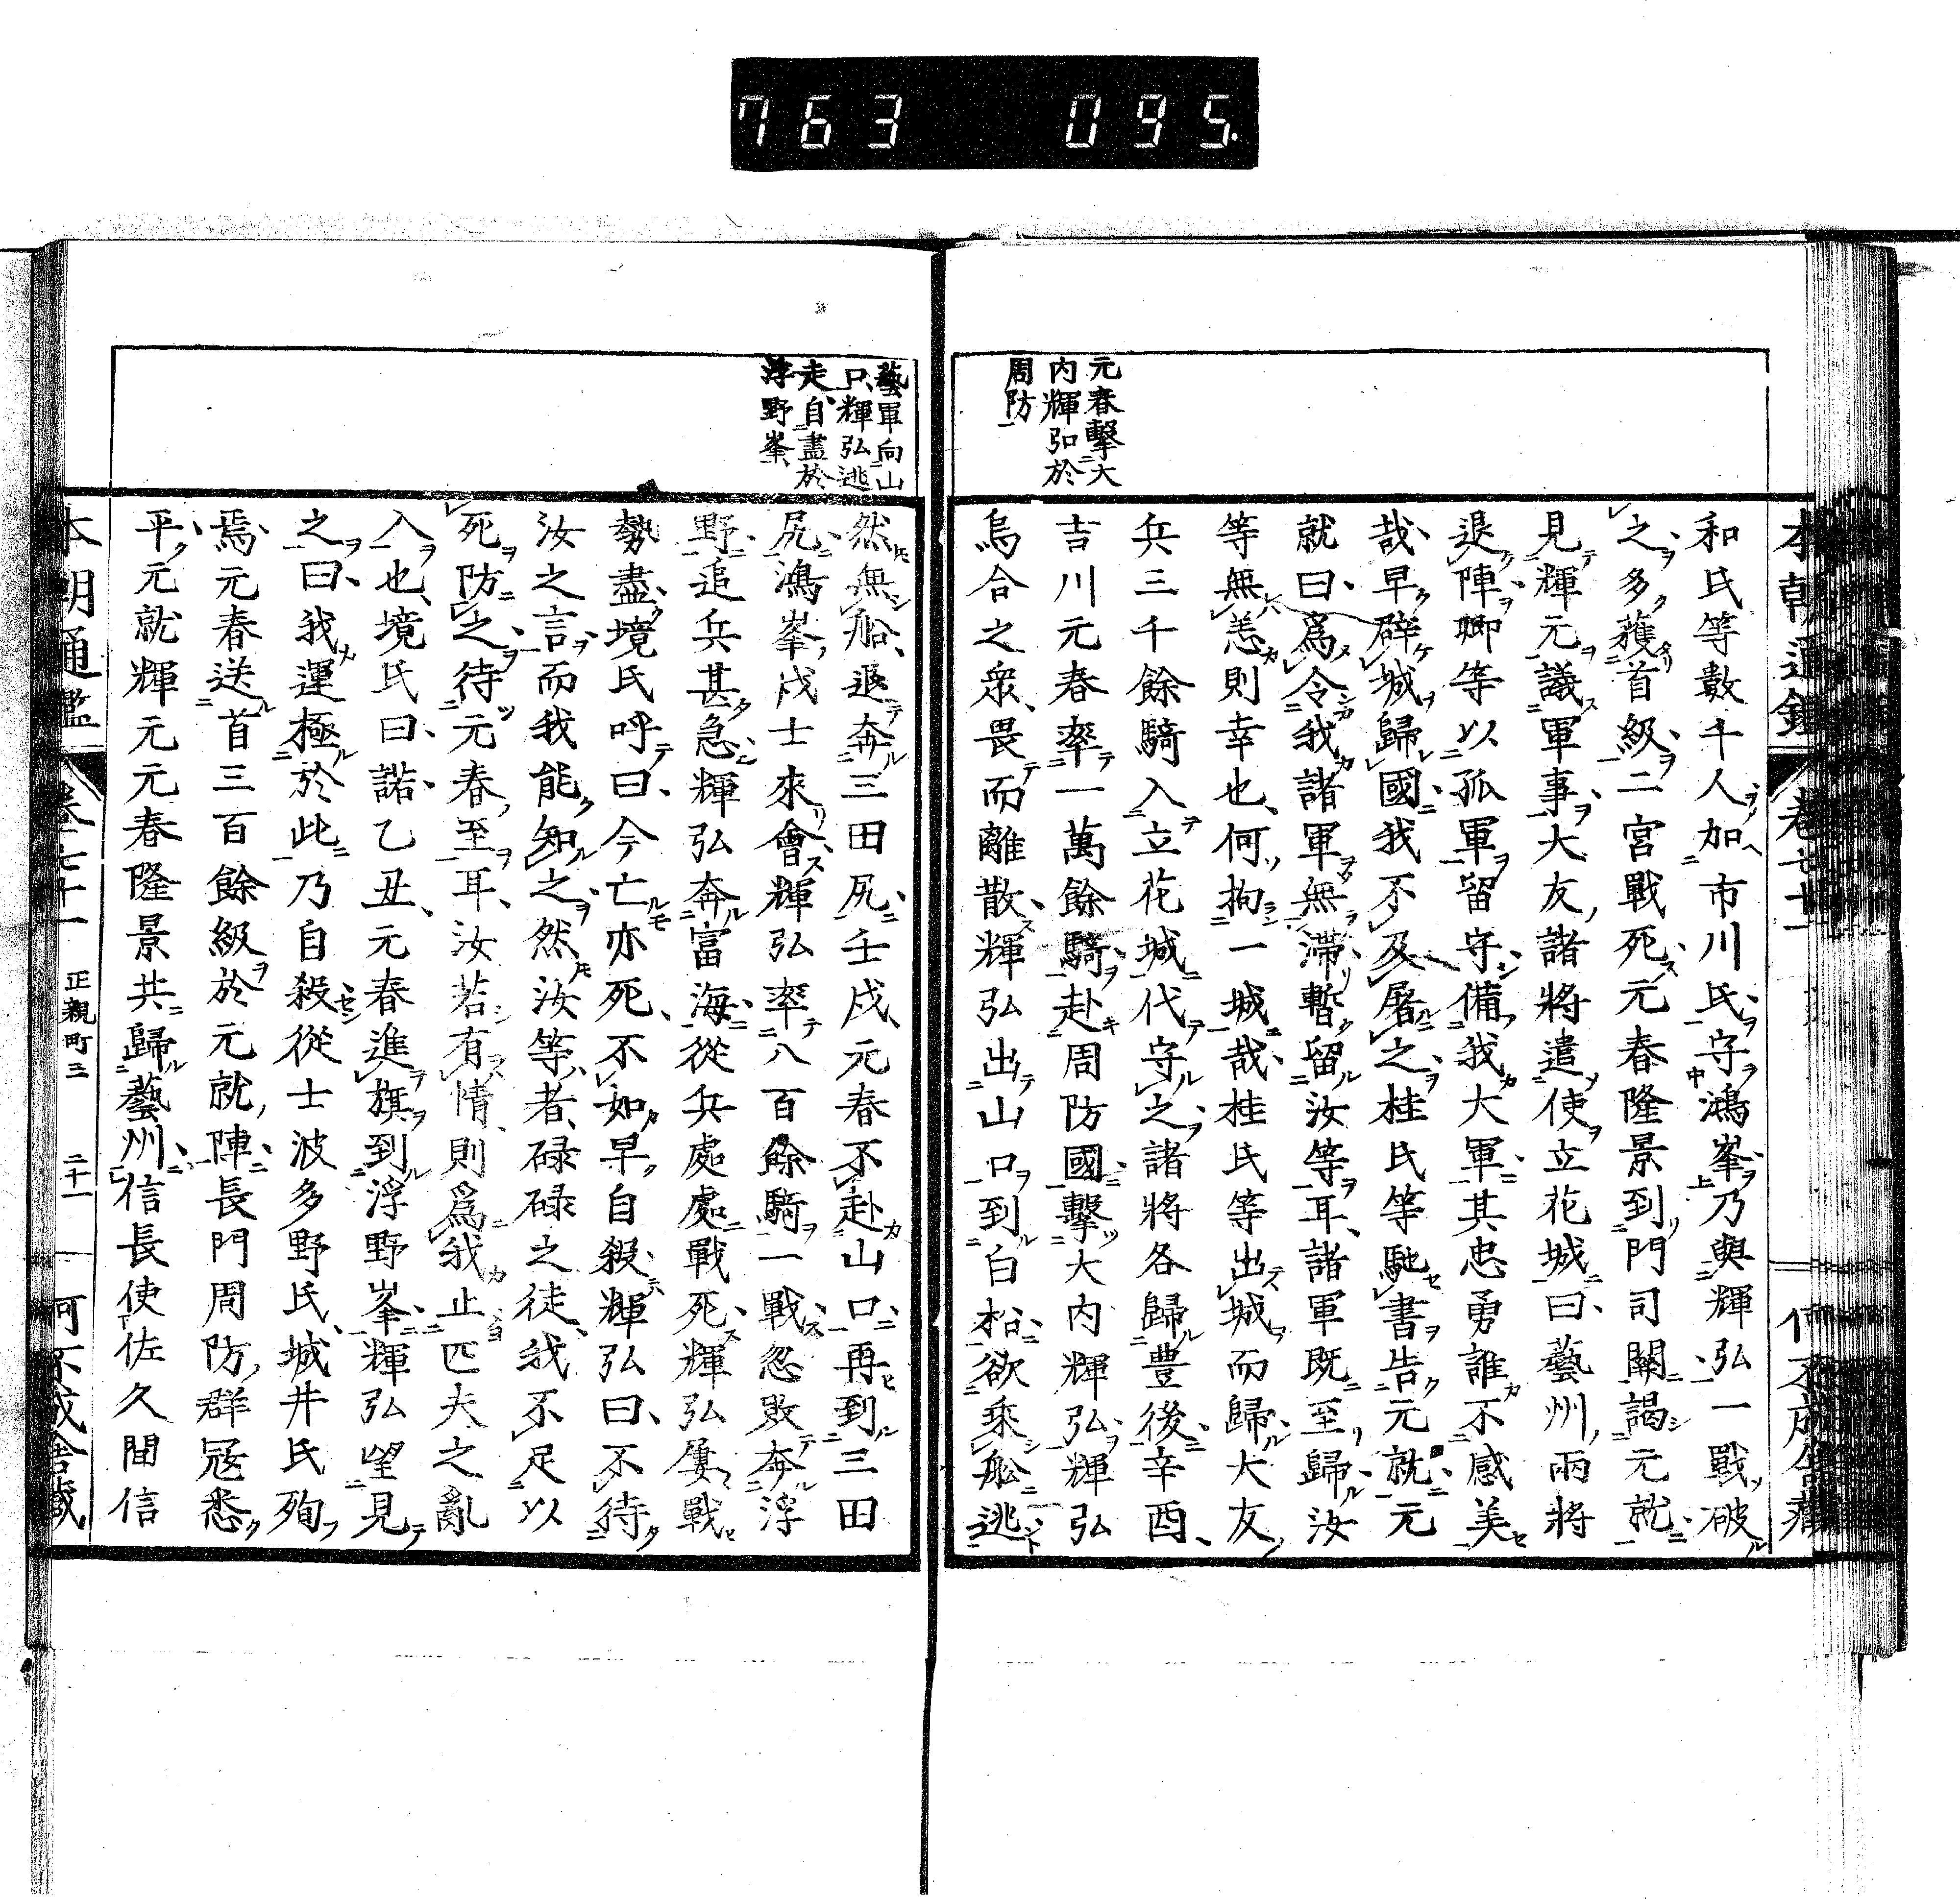 763 095.
本朝通鑑 卷七十一
元春擊大
内輝弘於
周防
和氏等數千人加市川氏守鴻峯乃與輝弘一戰破
之多獲首級二宮戰死元春隆景到門司關謁元就
見輝元議軍事大友諸將遣使立花城曰藝州兩將
退陣卿等以孤軍留守備我大軍其忠勇誰不感美
哉早辟城歸國我不及屠之桂氏等馳書告元就元
就曰爲令我諸軍無滯暫留汝等耳諸軍既至歸汝
等無恙則幸也何拘一城哉桂氏等出城而歸大友
兵三千餘騎入立花城代守之諸將各歸豊後辛酉
吉川元春率一萬餘騎赴周防國擊大内輝弘輝弘
烏合之衆畏而離散輝弘出山口到白松欲乘舩逃
藝軍向山
口輝弘逃
走自盡於
浮野峯
然無船退奔三田尻壬戌元春不赴山口再到三田
尻鴻峯戍士來會輝弘率八百餘騎一戰忽敗奔浮
野追兵甚急輝弘奔富海從兵處處戰死輝弘屢戰
勢盡境氏呼曰今亡亦死不如早自殺輝弘曰不待
汝之言而我能知之然汝等者碌碌之徒我不足以
死防之待元春至耳汝若有情則爲我止匹夫之亂
入也境氏曰諾乙丑元春進旗到浮野峯輝弘望見
之曰我運極於此乃自殺從士波多野氏城井氏殉
焉元春送首三百餘級於元就陣長門周防群冦悉
平元就輝元元春隆景共歸藝州信長使佐久間信
本朝通鑑 卷七十一 正親町三 二十一 何不成舍藏